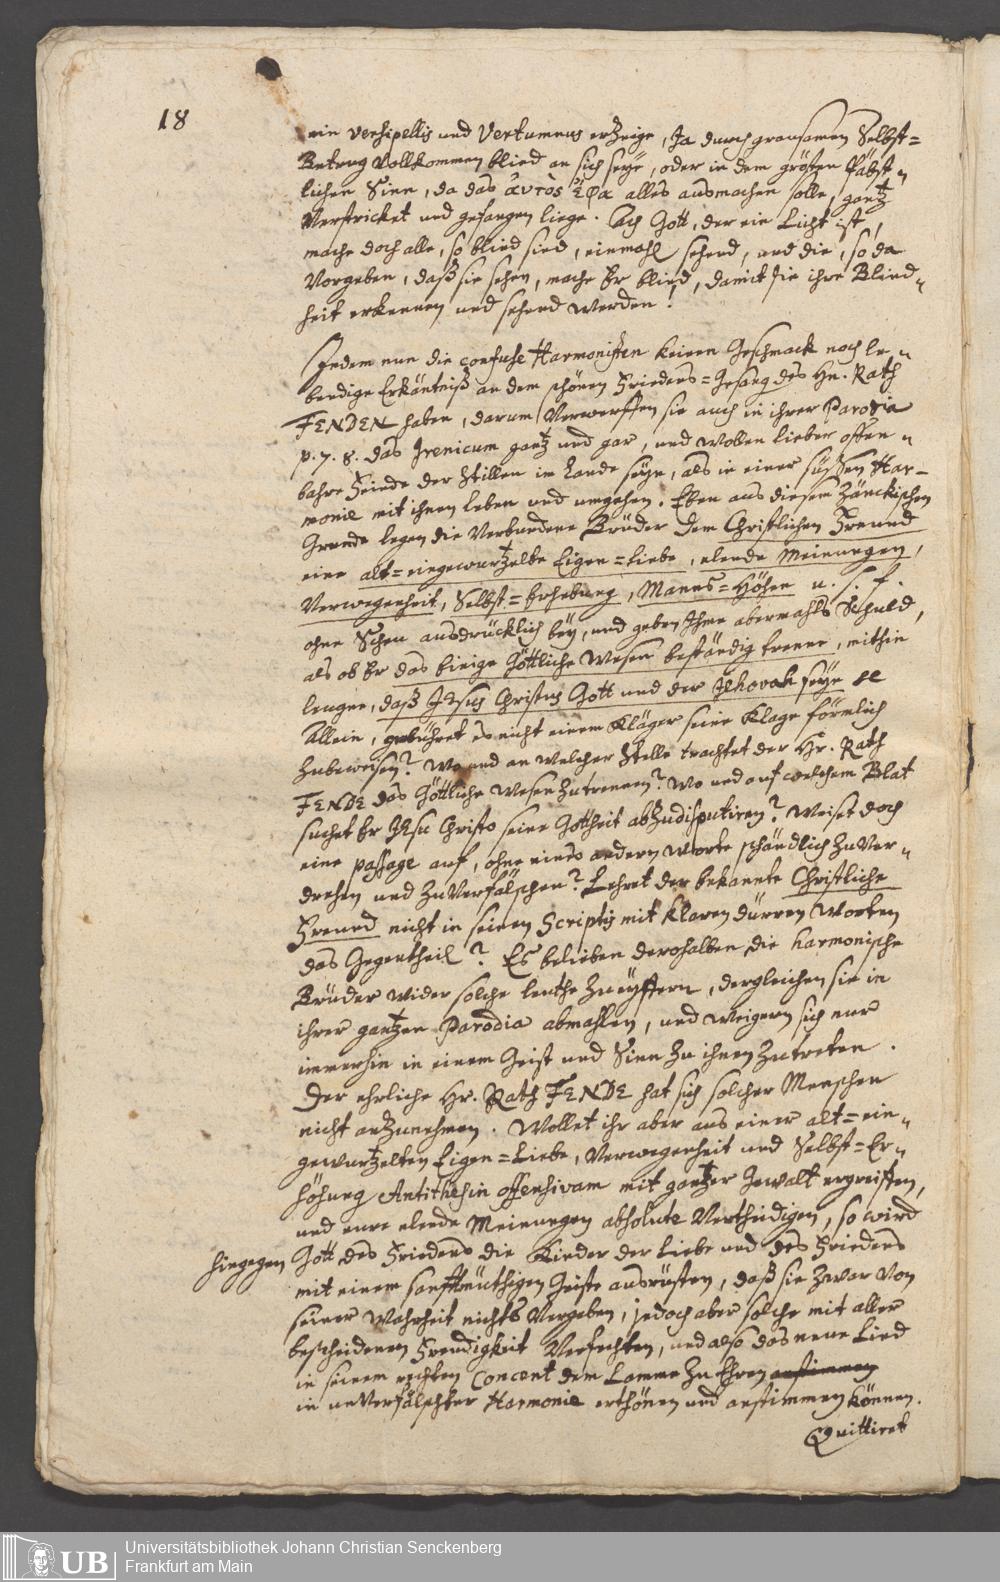 18
ein Versipellis und Vertumnus erzeige, Ja durch grausamen Selbst=
Betrug vollkommen blind an sich seye, oder in dem grösten Päbst=
lichen Sinn, da das ἀυτὸς ἔφα alles ausmachen solle, gantz
Verstricket und gefangen liege. Ach Gott, der ein Licht ist,
mache doch alle, so blind sind, einmahl sehend, und die, so da
Vorgeben, daß sie sehen, mache Er blind, damit sie ihre Blind=
heit erkennen und sehend werden!
Indem nun die confuse Harmonisten keinen Geschmack noch le=
bendige Erkäntniß an dem schönen Friedens=Gesang des Hn. Rath
FENDEN haben, darum Verwerffen sie auch in ihrer Parodia
p. 7. 8. das Irenicum gantz und gar, und wollen lieber offen=
bahre Feinde der Stillen im Lande seyn, als in einer süssen Har=
monie mit ihnen leben und umgehen. Eben aus diesem Zänckischen
Grunde legen die Verbundene Brüder dem Christlichen Freund
eine alt=eingewurtzelte Eigen=Liebe, elende Meinungen,
Verwegenheit, Selbst=Erhebung, Manns=Höhen u. s. f.
ohne Scheu ausdrücklich bey, und geben Ihme abermahls Schuld,
als ob Er das Einige Göttliche Wesen beständig trenne, mithin
leugne, daß JEsus Christus Gott und der Jehovah seye etc
Allein, gebühret es nicht einem Kläger seine Klage förmlich
zubeweisen? Wo und an welcher Stelle trachtet der Hr. Rath
FENDE das Göttliche Wesen zutrennen? Wo und auf welchem Blat
suchet Er JEsu Christo seine Gottheit abzudisputiren? Weiset doch
eine passage auf, ohne eines andern Worte schändlich zu Ver=
drehen und zu Verfälschen? Lehret der bekannte Christliche
Freund nicht in seinen Scriptis mit klaren dürren Worten
das Gegentheil? Es belieben derohalben die harmonische
Brüder wider solche leuthe zu eyffern, dergleichen sie in
ihrer gantzen Parodia abmahlen, und weigern sich nur
immerhin in einem Geist und Sinn zu ihnen zutreten.
Der ehrliche Hr. Rath FENDE hat sich solcher Menschen
nicht anzunehmen. Wollet ihr aber aus einer alt=ein=
gewurtzelten Eigen=Liebe, Verwegenheit und Selbst=Er=
höhung Antithesin offensivam mit gantzer Gewalt ergreiffen,
und eure elende Meinungen absolute Vertheidigen, so wird
hingegen Gott des Friedens die Kinder der Liebe und des Friedens
mit einem sanfftmüthigen Geiste ausrüsten, daß sie zwar Von
seiner Wahrheit nichts Vergeben, jedoch aber solche mit aller
bescheidenen Freudigkeit Verfechten, und also das neue Lied
in seinem rechten Concent dem Lamme zu Ehren anstimmen
in unverfälschter Harmonie erthönen und anstimmen können.
Quittiret
UB
Universitätsbibliothek Johann Christian Senckenberg
Frankfurt am Main